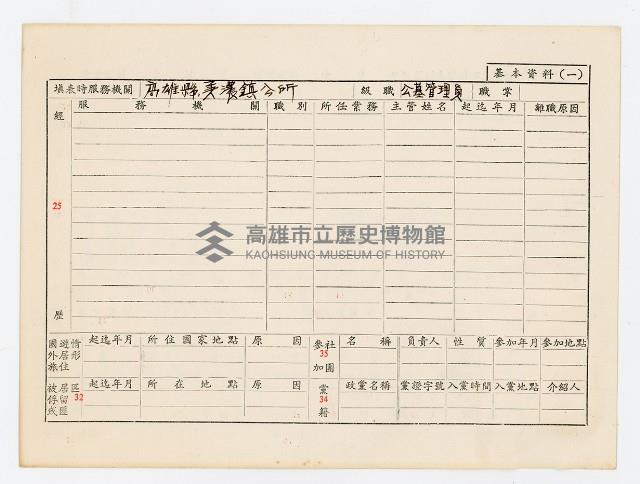 基本資料(一)
填表時服務機關 高雄縣美濃鎮公所 級職 公墓管理員 職掌
服務機關 職別 所任業務 主管姓名 起迄年月 離職原因
經
25
歷
高雄市立歷史博物館
KAOHSIUNG MUSEUM OF HISTORY
國外旅遊居住情形 起迄年月 所住國家地點 原因 參加社團 35 名稱 負責人 性質 參加年月 參加地點
被俘或居留匪區 32 起迄年月 所在地點 原因 黨籍 34 政黨名稱 黨證字號 入黨時間 入黨地點 介紹人